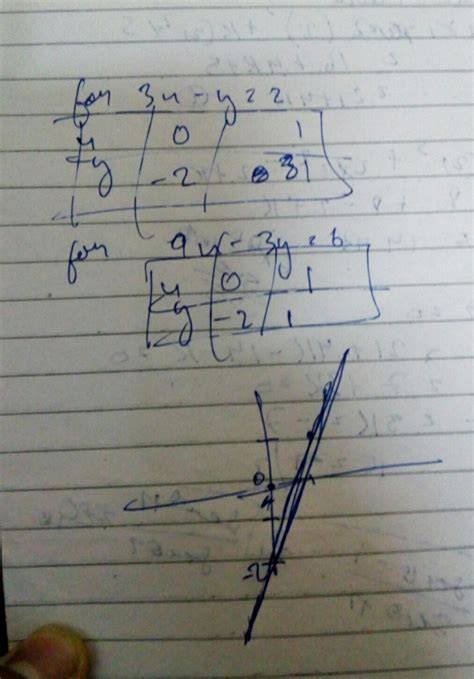 for 3x - y = 2
x 0 1
y -2 1
for 9x - 3y = 6
x 0 1
y -2 1
0
-2